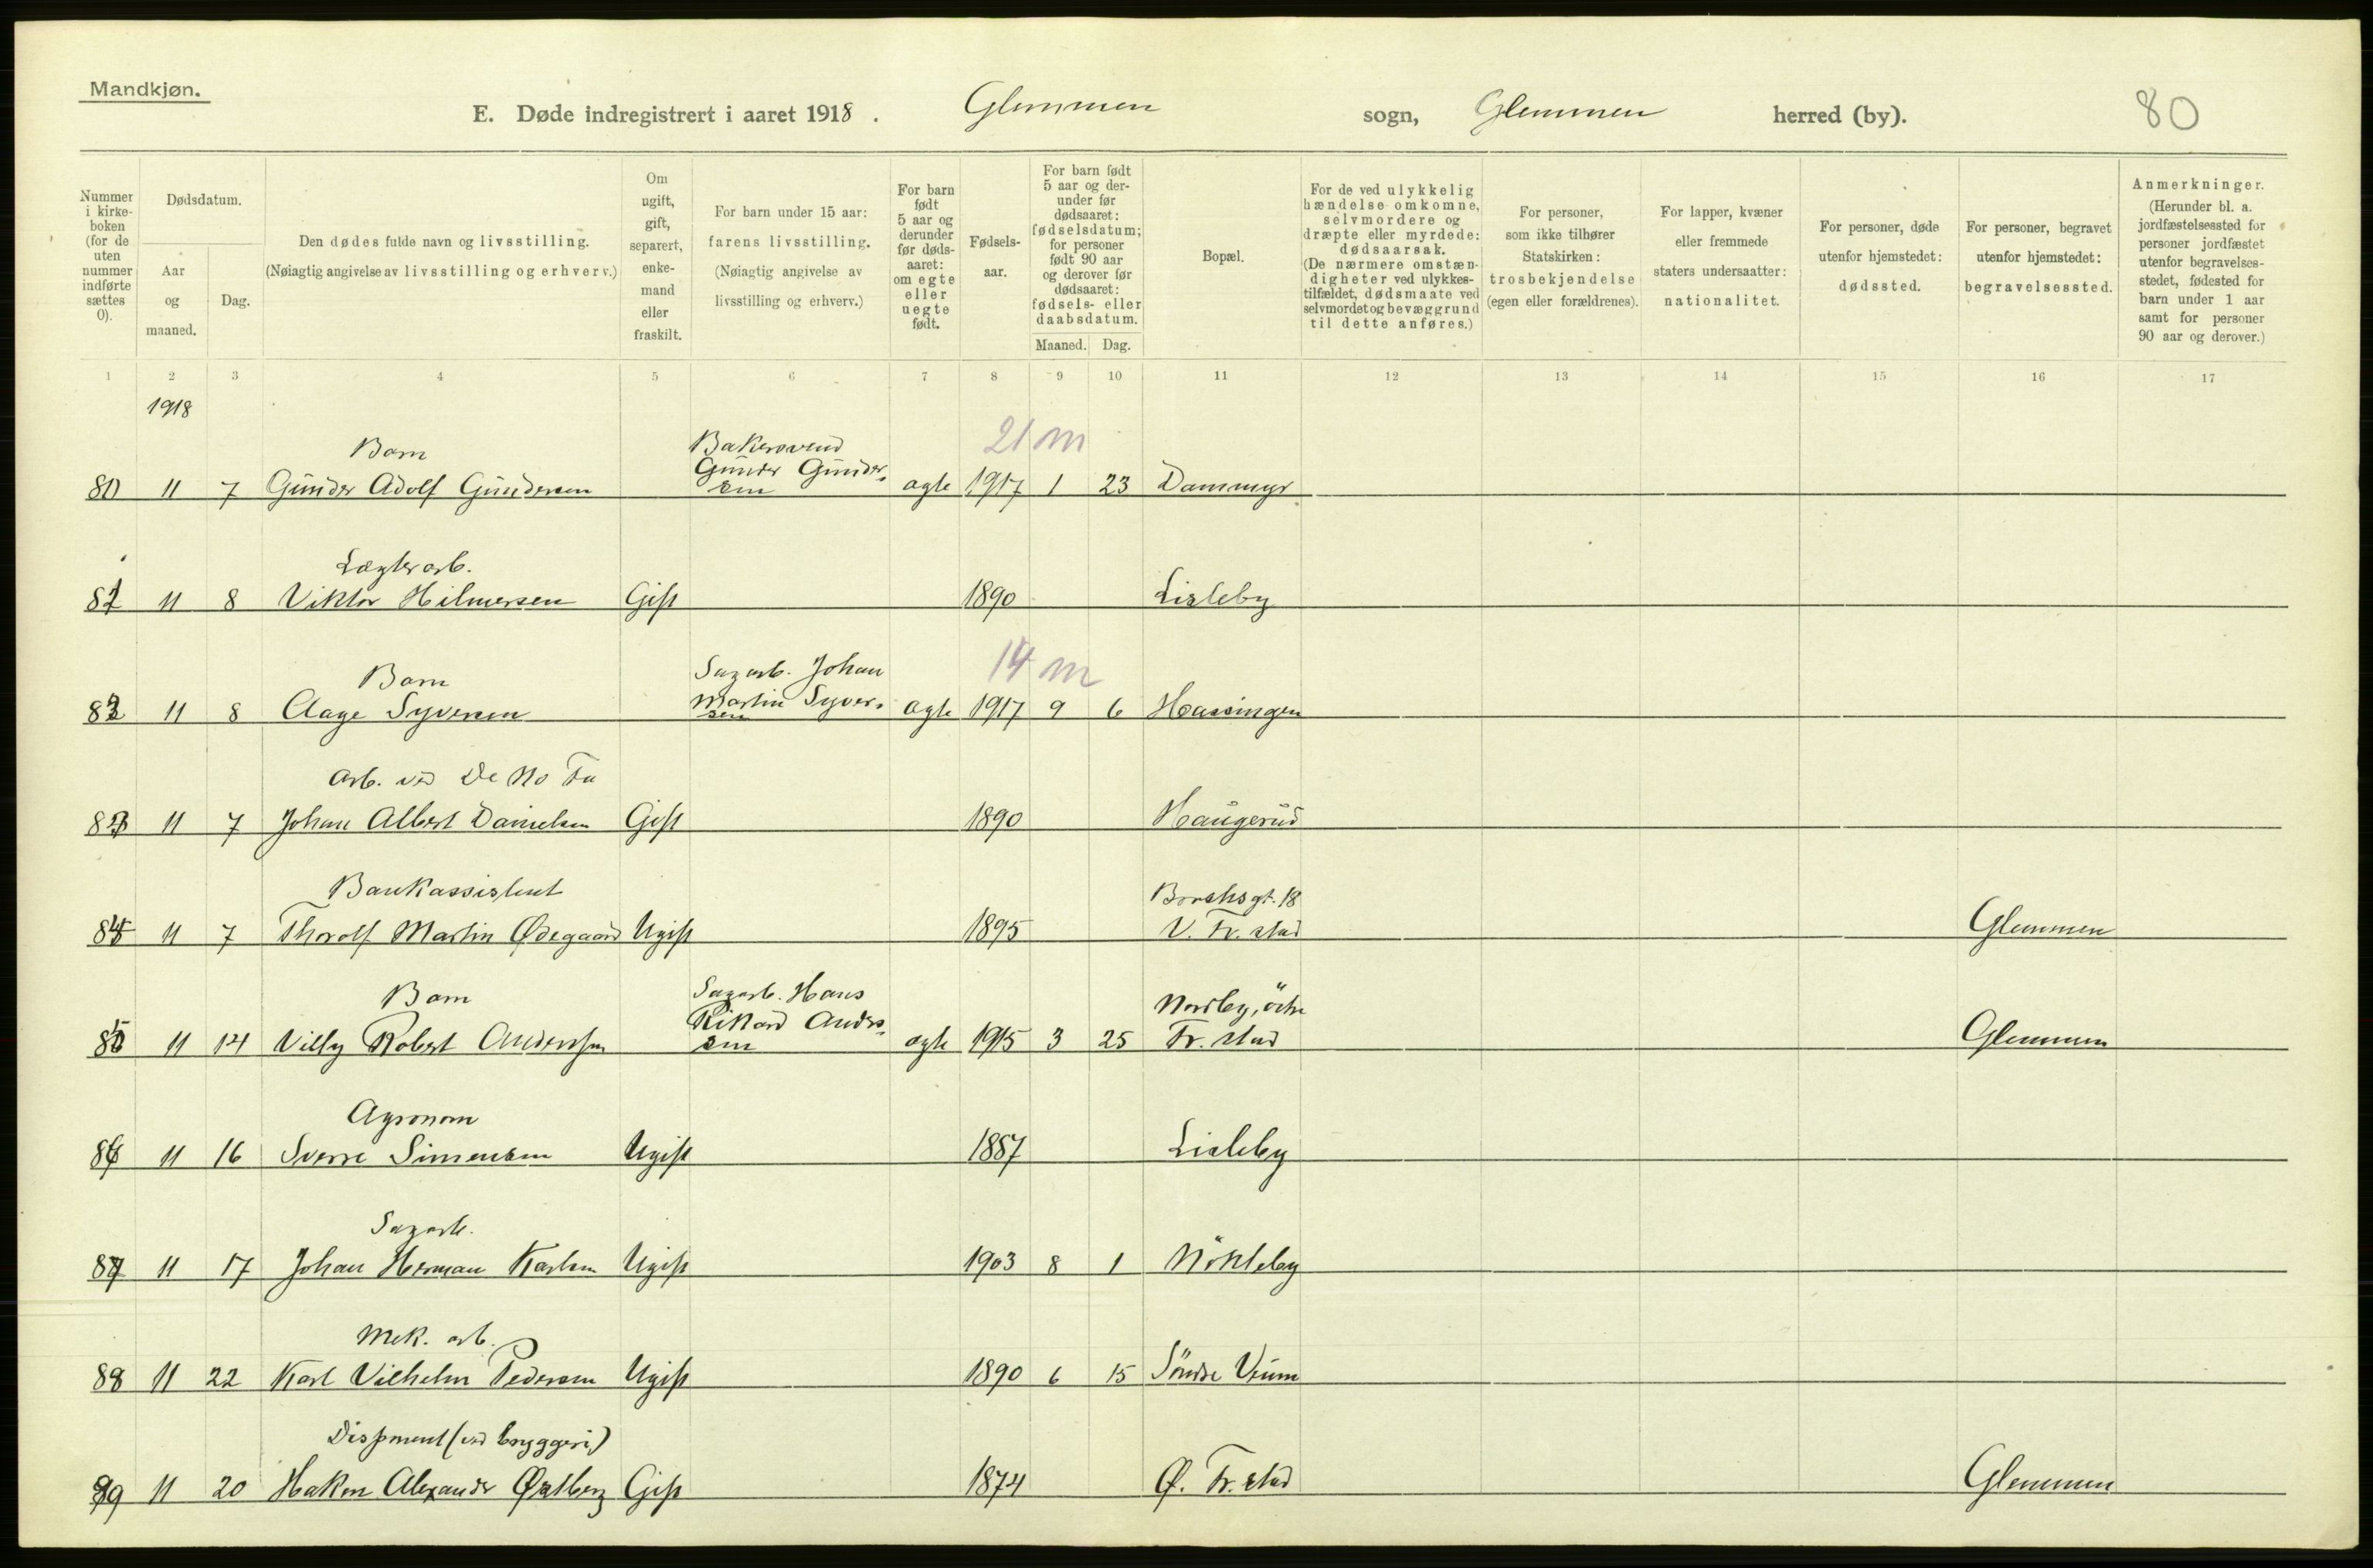 Mandkjøn.
E. Døde indregistrert i aaret 1918. Glemmen sogn, Glemmen herred (by). 80
Nummer i kirke-boken (for de uten nummer indførte sættes 0).
Dødsdatum.
Aar og maaned.
Dag.
Den dødes fulde navn og livsstilling.
(Nøiagtig angivelse av livsstilling og erhverv.)
Om ugift, gift, separert, enke-mand eller fraskilt.
For barn under 15 aar: farens livsstilling. (Nøiagtig angivelse av livsstilling og erhverv.)
For barn født 5 aar og derunder før døds-aaret: om egte eller uegte født.
Fødsels-aar.
For barn født 5 aar og der-under før dødsaaret: fødselsdatum; for personer født 90 aar og derover før dødsaaret: fødsels- eller daabsdatum.
Maaned. Dag.
Bopæl.
For de ved ulykkelig hændelse omkomne, selvmordere og dræpte eller myrdede: dødsaarsak. (De nærmere omstæn-digheter ved ulykkes-tilfældet, dødsmaate ved selvmordet og bevæggrund til dette anføres.)
For personer, som ikke tilhører Statskirken: trosbekjendelse (egen eller forældrenes).
For lapper, kvæner eller fremmede staters undersaatter: nationalitet.
For personer, døde utenfor hjemstedet: dødssted.
For personer, begravet utenfor hjemstedet: begravelsessted.
Anmerkninger. (Herunder bl. a. jordfæstelsessted for personer jordfæstet utenfor begravelses-stedet, fødested for barn under 1 aar samt for personer 90 aar og derover.)
1 2 3 4 5 6 7 8 9 10 11 12 13 14 15 16 17
1918
Barn Bakersvend 21 m
80 11 7 Gunder Adolf Gundersen Gunder Gunder-sen ægte 1917 1 23 Dammyr
Lægterarb.
81 11 8 Viktor Hilmersen Gift 1890 Lisleby
Barn Sagarb. Johan 14 m
82 11 8 Aage Syversen Martin Syver-sen ægte 1917 9 6 Hassingen
Arb. ved De No Fa
83 11 7 Johan Albert Danielsen Gift 1890 Haugerud
Bankassistent Brochsgt. 18
84 11 7 Thorolf Martin Ødegaard Ugift 1895 V. Fr. stad Glemmen
Barn Sagarb. Hans Nordby, östre
85 11 14 Villy Robert Anderssen Rikard Anders-sen ægte 1915 3 25 Fr. stad Glemmen
Agronom
86 11 16 Sverre Simensen Ugift 1887 Lisleby
Sagarb.
87 11 17 Johan Herman Karlsen Ugift 1903 8 1 Nökleby
Mek. arb.
88 11 22 Karl Vilhelm Pedersen Ugift 1890 6 15 Söndre Veum
Disponent (ved bryggeri)
89 11 20 Hakon Alexander Østberg Gift 1874 Ø. Fr. stad Glemmen